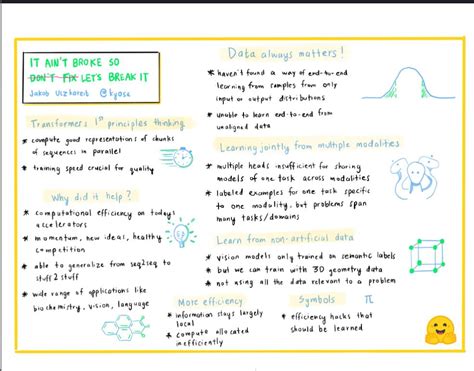 IT AIN'T BROKE SO
DON'T FIX LET'S BREAK IT
Jakob Uszkoreit @kyosu
Transformers 1st principles thinking
* compute good representations of chunks
of sequences in parallel
* training speed crucial for quality
Why did it help?
* computational efficiency on todays
accelerators
* momentum, new ideas, healthy
competition
* able to generalize from seq2seq to
stuff2stuff
* wide range of applications like
biochemistry, vision, language
Data always matters!
* haven't found a way of end-to-end
learning from samples from only
input or output distributions
* unable to learn end-to-end from
unaligned data
Learning jointly from multiple modalities
* multiple heads insufficient for sharing
models of one task across modalities
* labeled examples for one task specific
to one modality, but problems span
many tasks/domains
Learn from non-artificial data
* vision models only trained on semantic labels
* but we can train with 3D geometry data
* not using all the data relevant to a problem
More efficiency
* information stays largely
local
* compute allocated
inefficiently
Symbols π
* efficiency hacks that
should be learned